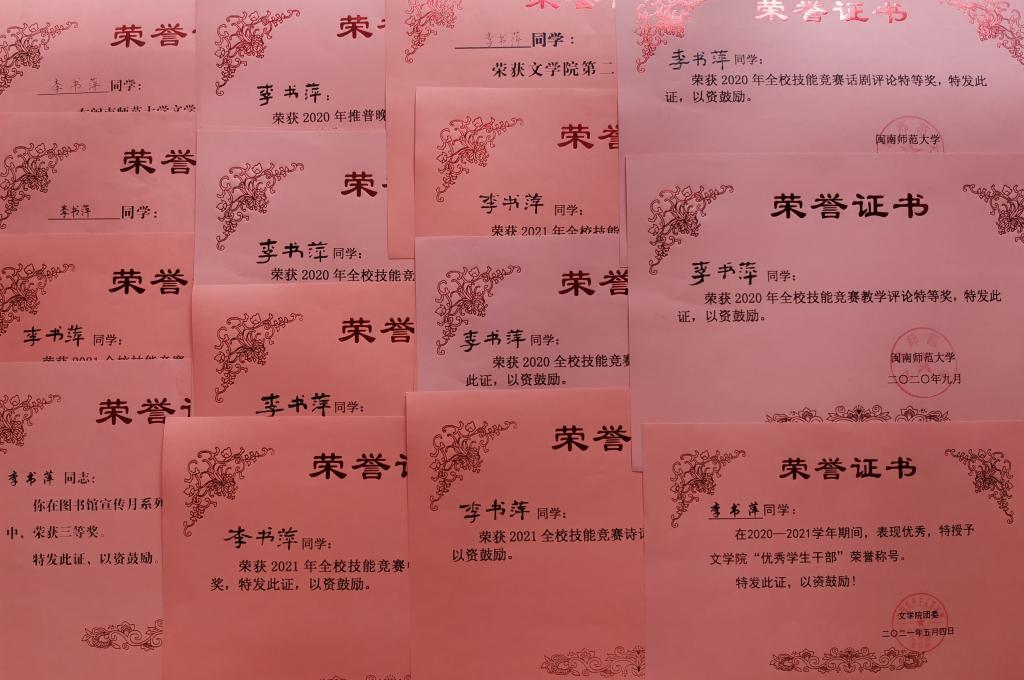 荣誉
李书萍同学：
荣
李书萍：
荣获 2020 年推普晚
李书萍同学：
荣获文学院第二
荣誉证书
李书萍同学：
荣获 2020 年全校技能竞赛话剧评论特等奖，特发此
证，以资鼓励。
闽南师范大学
荣誉
李书萍同学：
荣
李书萍同学：
荣获 2020 年全校技能竞
荣誉
李书萍 同学：
荣获 2021 年全校技能
荣誉证书
李书萍 同学：
荣获 2020 年全校技能竞赛教学评论特等奖，特发此
证，以资鼓励。
闽南师范大学
二〇二〇年九月
荣誉
李书萍同学：
荣誉
李书萍同学：
荣誉
李书萍同学：
荣获 2020 全校技能竞赛
此证，以资鼓励。
荣誉
李书萍 同志：
你在图书馆宣传月系列
中，荣获三等奖。
特发此证，以资鼓励。
荣誉
李书萍同学：
荣获 2021 年全校技能竞赛
奖，特发此证，以资鼓励。
荣誉
李书萍同学：
荣获 2021 全校技能竞赛诗
以资鼓励。
荣誉证书
李书萍同学：
在2020—2021学年期间，表现优秀，特授予
文学院“优秀学生干部”荣誉称号。
特发此证，以资鼓励！
文学院团委
二〇二一年五月四日